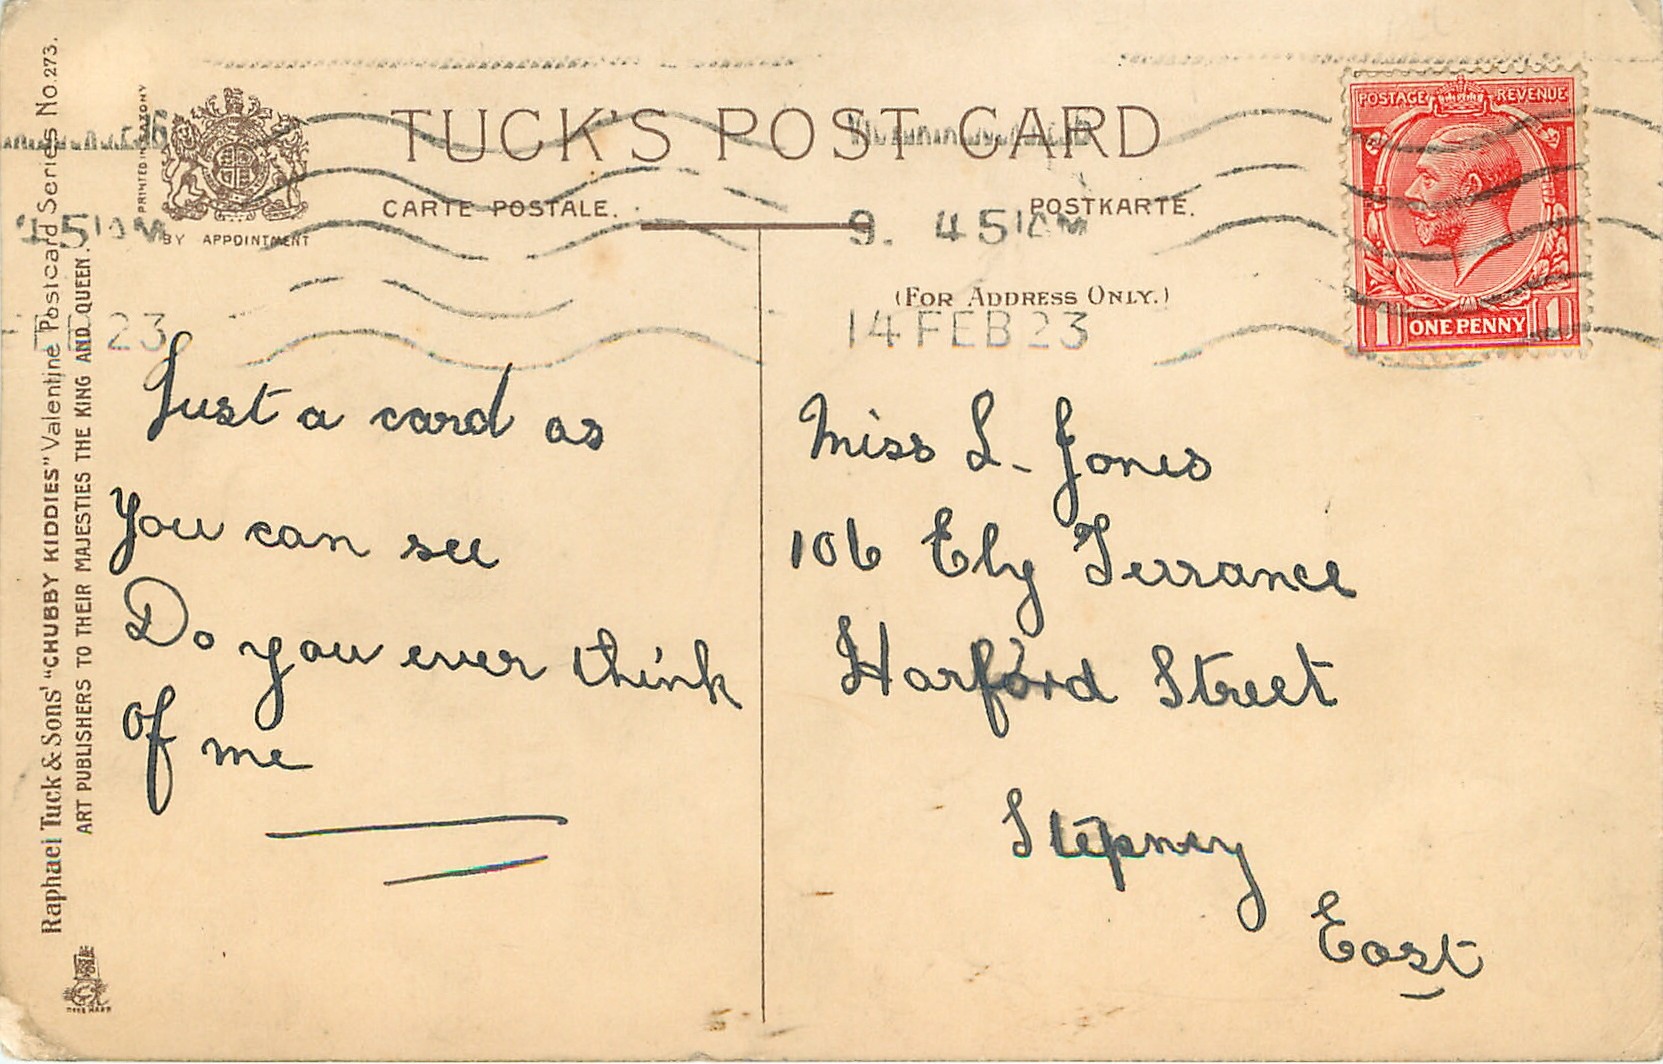 TUCK'S POST CARD
CARTE POSTALE.
POSTKARTE.
(FOR ADDRESS ONLY.)
PRINTED IN SAXONY
BY APPOINTMENT
POSTAGE REVENUE
1 ONE PENNY 1
9. 45 AM
14 FEB 23
45 AM
23
Just a card as
you can see
Do you ever think
of me
Miss L. Jones
106 Ely Terrance
Harford Street
Stepney
East
Raphael Tuck & Sons' "CHUBBY KIDDIES" Valentine Postcard Series No. 273.
ART PUBLISHERS TO THEIR MAJESTIES THE KING AND QUEEN.
TRADE MARK